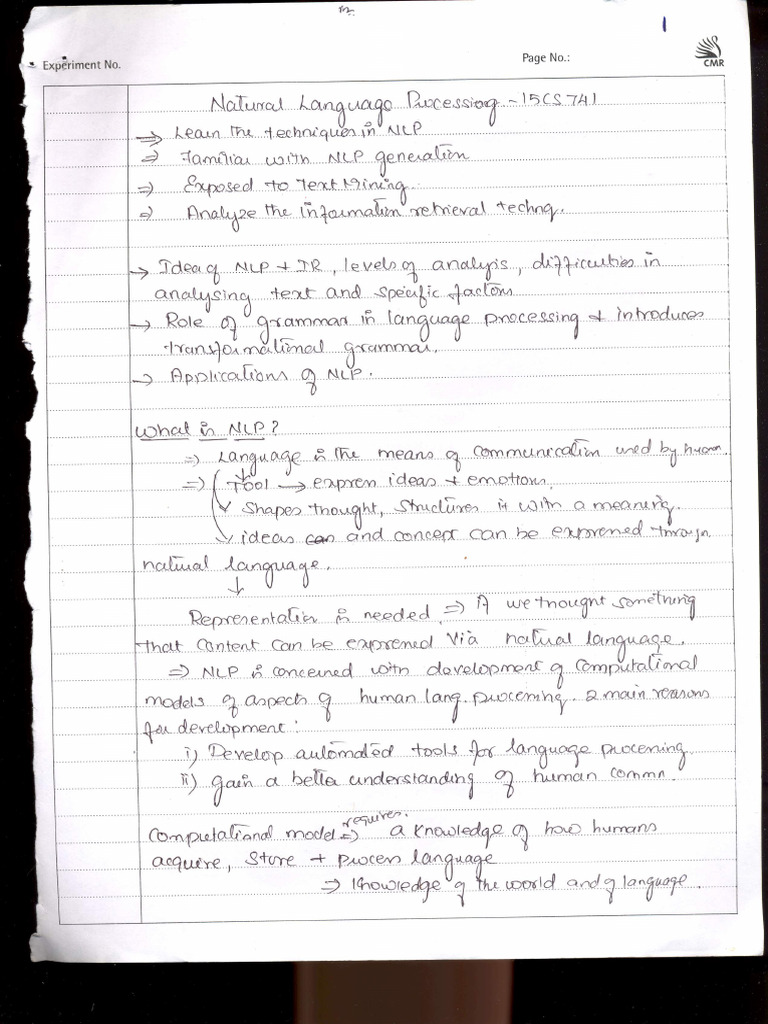 1
Experiment No.
Page No.:
CMR
Natural Language Processing - 15CS741
⇒ Learn the techniques in NLP
⇒ Familiar with NLP generation
⇒ Exposed to Text Mining.
⇒ Analyze the Information retrieval technq.
→ Idea of NLP + IR, levels of analysis, difficulties in
analysing text and specific factors
→ Role of grammar in language processing + introduces
transformational grammar.
→ Applications of NLP.
What is NLP?
⇒ Language is the means of communication used by human.
⇒ Tool → express ideas + emotions.
↓ Shapes thought, structures it with a meaning.
↓ ideas can and concept can be expressed through
natural language.
↓
Representation is needed. ⇒ If we thought something
that content can be expressed via natural language.
⇒ NLP is concerned with development of computational
models of aspects of human lang. processing. 2 main reasons
for development:
i) Develop automated tools for language processing.
ii) gain a better understanding of human commn.
Computational model ⇒ requires. a knowledge of how humans
acquire, store + process language
⇒ Knowledge of the world and of language.